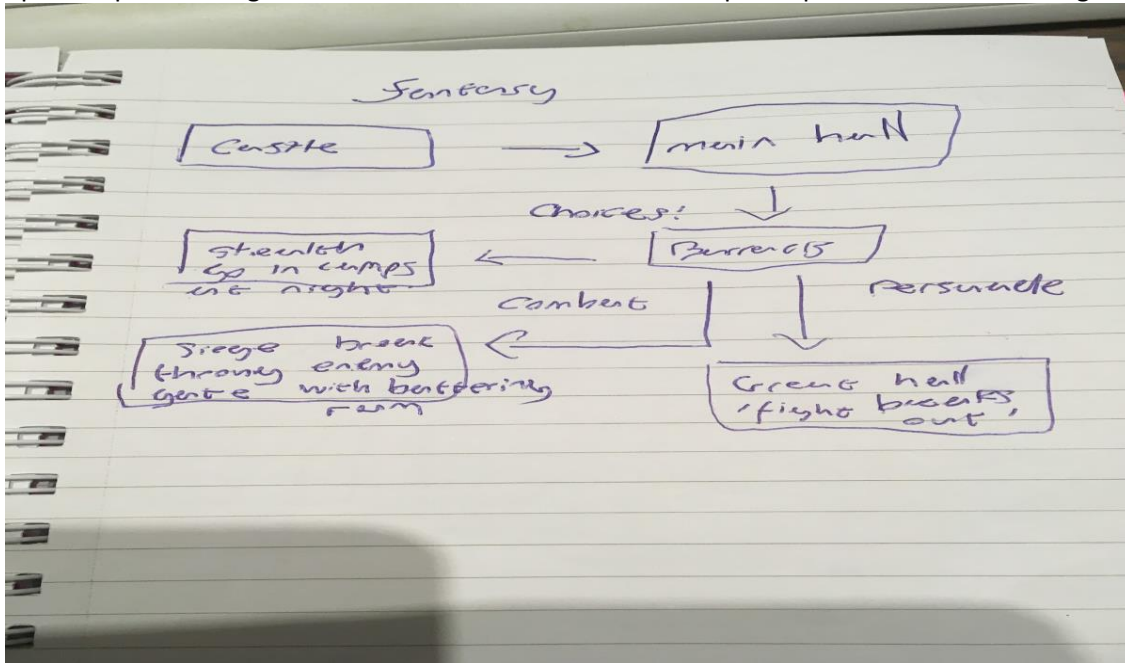 Fantasy
Castle
main hall
Choices:
Barracks
Stealth
go in camps
at night
Combat
Persuade
Siege break
through enemy
gate with battering
ram
Great hall
'fight breaks
out'